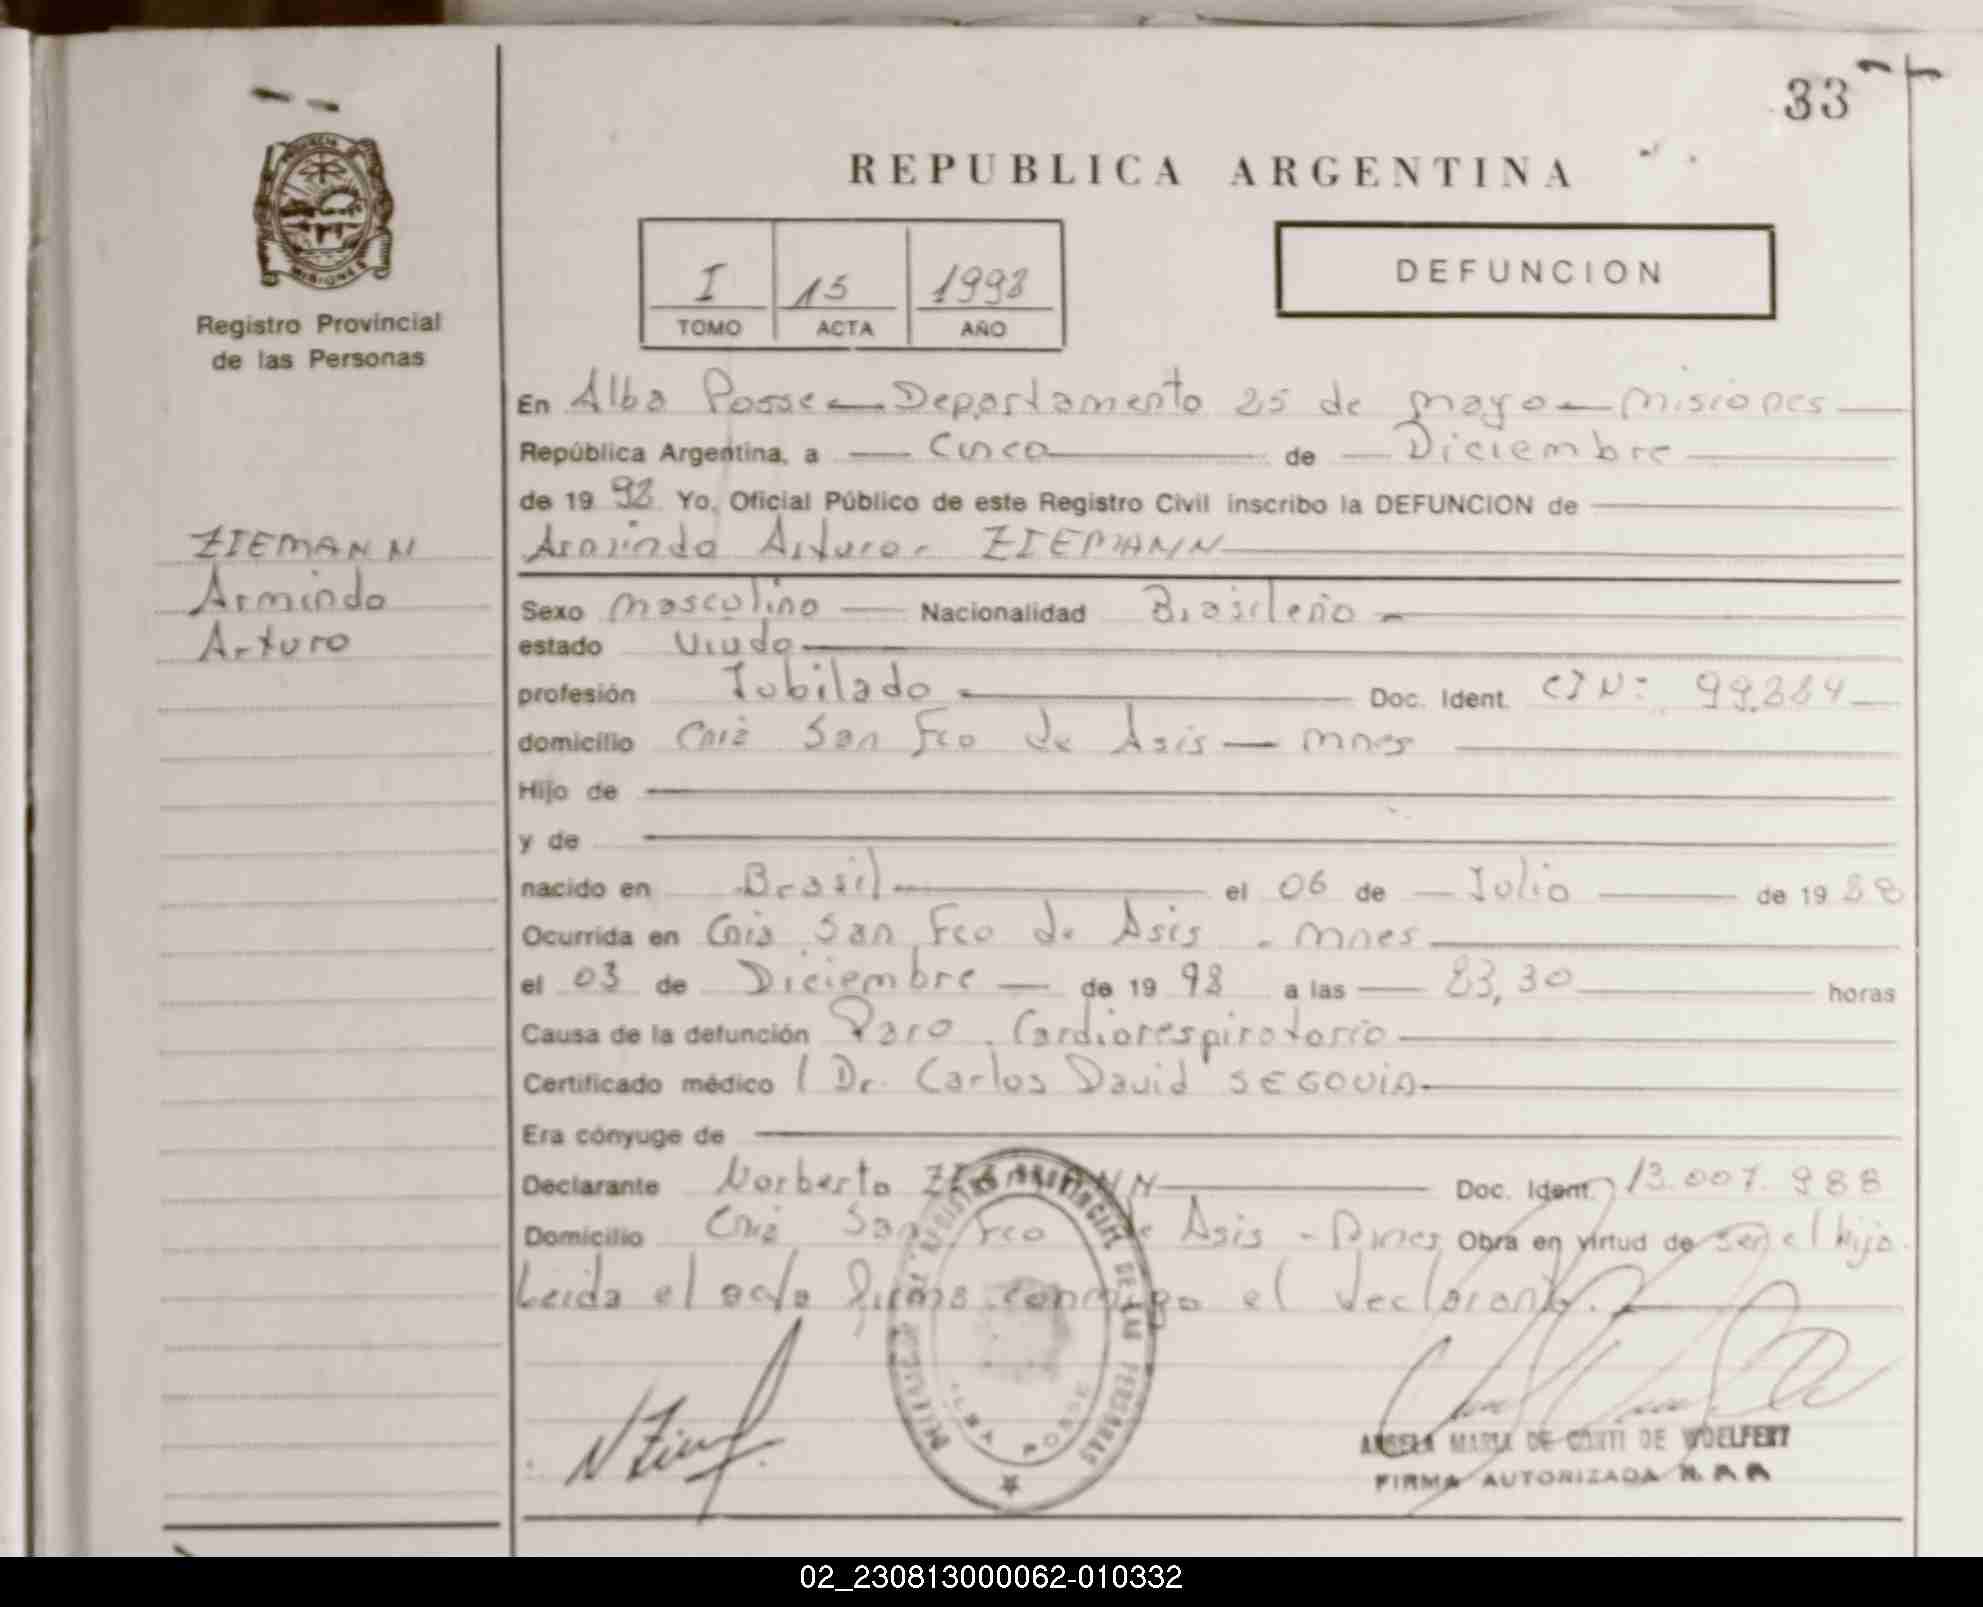 33
PROVINCIA DE
MISIONES
Registro Provincial
de las Personas
REPUBLICA ARGENTINA
I 15 1998
TOMO ACTA AÑO
DEFUNCION
En Alba Posse — Departamento 25 de mayo — misiones —
República Argentina, a — Cinco — de — Diciembre —
de 19 98 Yo, Oficial Público de este Registro Civil inscribo la DEFUNCION de
ZIEMANN
Armindo
Arturo
Armindo Arturo - ZIEMANN
Sexo masculino — Nacionalidad Brasileño -
estado Viudo —
profesión Jubilado — Doc. Ident. CI N:
domicilio Cnia San Fco de Asis — mnes
Hijo de —
y de —
nacido en Brasil — el 06 de — Julio — de 19
Ocurrida en Cnia San Fco de Asis - mnes
el 03 de Diciembre — de 19 98 a las — 23,30 — horas
Causa de la defunción Paro Cardiorespiratorio
Certificado médico / Dr. Carlos David SEGOVIA
Era cónyuge de —
Declarante Norberto ZIEMANN — Doc. Ident. 13.007.988
Domicilio Cnia San Fco de Asis - Mnes Obra en virtud de ser el hijo.
Leida el acta firma conmigo el declarante.
DELEGACION REGISTRO PROVINCIAL DE LAS PERSONAS
ALBA POSSE
ANGELA MARIA DE CONTI DE WOELFERT
FIRMA AUTORIZADA
02_230813000062-010332